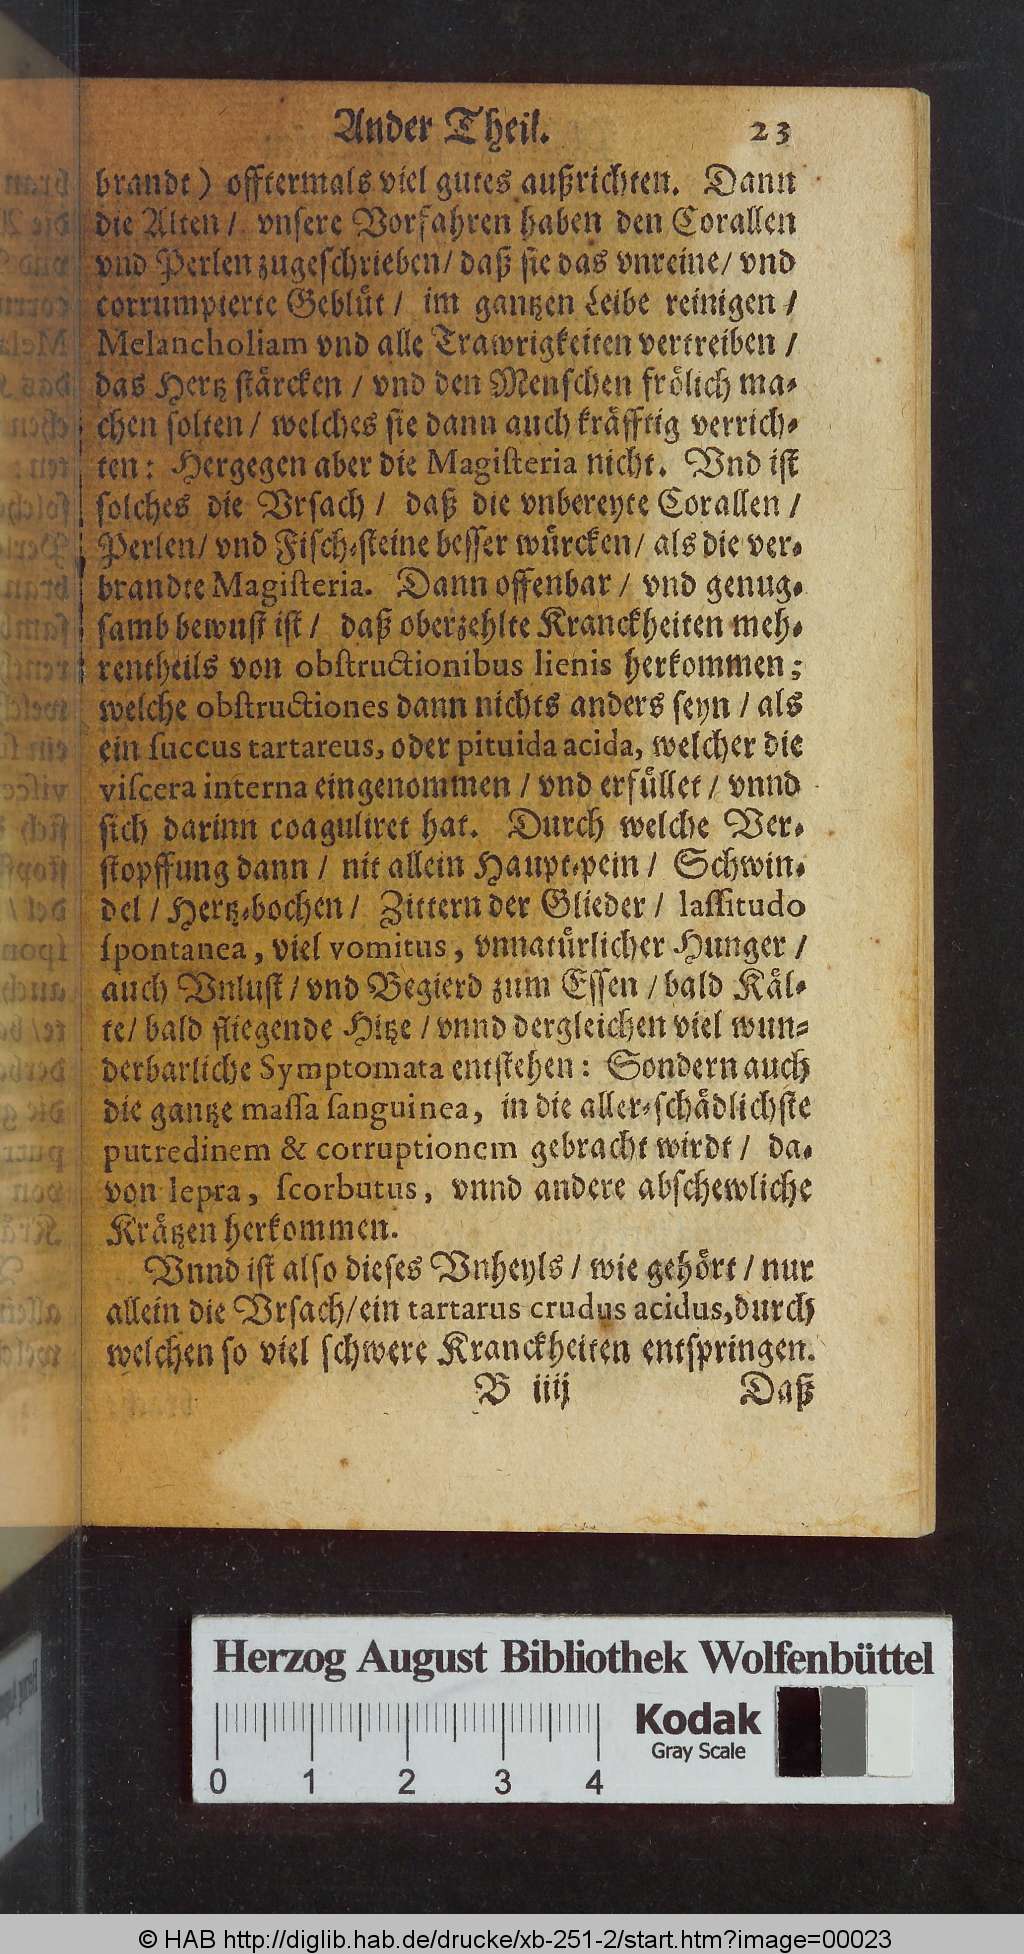 Ander Theil. 23
brandt) offtermals viel gutes außrichten. Dann
die Alten / vnsere Vorfahren haben den Corallen
vnd Perlen zugeschrieben / daß sie das vnreine / vnd
corrumpierte Geblüt / im gantzen Leibe reinigen /
Melancholiam vnd alle Trawrigkeiten vertreiben /
das Hertz stärcken / vnd den Menschen frölich ma-
chen solten / welches sie dann auch kräfftig verrich-
ten: Hergegen aber die Magisteria nicht. Vnd ist
solches die Vrsach / daß die vnbereyte Corallen /
Perlen / vnd Fisch-steine besser würcken / als die ver-
brandte Magisteria. Dann offenbar / vnd genug-
samb bewust ist / daß oberzehlte Kranckheiten meh-
rentheils von obstructionibus lienis herkommen;
welche obstructiones dann nichts anders seyn / als
ein succus tartareus, oder pituida acida, welcher die
viscera interna eingenommen / vnd erfüllet / vnnd
sich darinn coaguliret hat. Durch welche Ver-
stopffung dann / nit allein Haupt-pein / Schwin-
del / Hertz-bochen / Zittern der Glieder / lassitudo
spontanea, viel vomitus, vnnatürlicher Hunger /
auch Vnlust / vnd Begierd zum Essen / bald Käl-
te / bald fliegende Hitze / vnnd dergleichen viel wun-
derbarliche Symptomata entstehen: Sondern auch
die gantze massa sanguinea, in die aller-schädlichste
putredinem & corruptionem gebracht wirdt / da-
von lepra, scorbutus, vnnd andere abschewliche
Krätzen herkommen.
Vnnd ist also dieses Vnheyls / wie gehört / nur
allein die Vrsach / ein tartarus crudus acidus, durch
welchen so viel schwere Kranckheiten entspringen.
B iiij Daß
Herzog August Bibliothek Wolfenbüttel
Kodak
Gray Scale
0 1 2 3 4
© HAB http://diglib.hab.de/drucke/xb-251-2/start.htm?image=00023